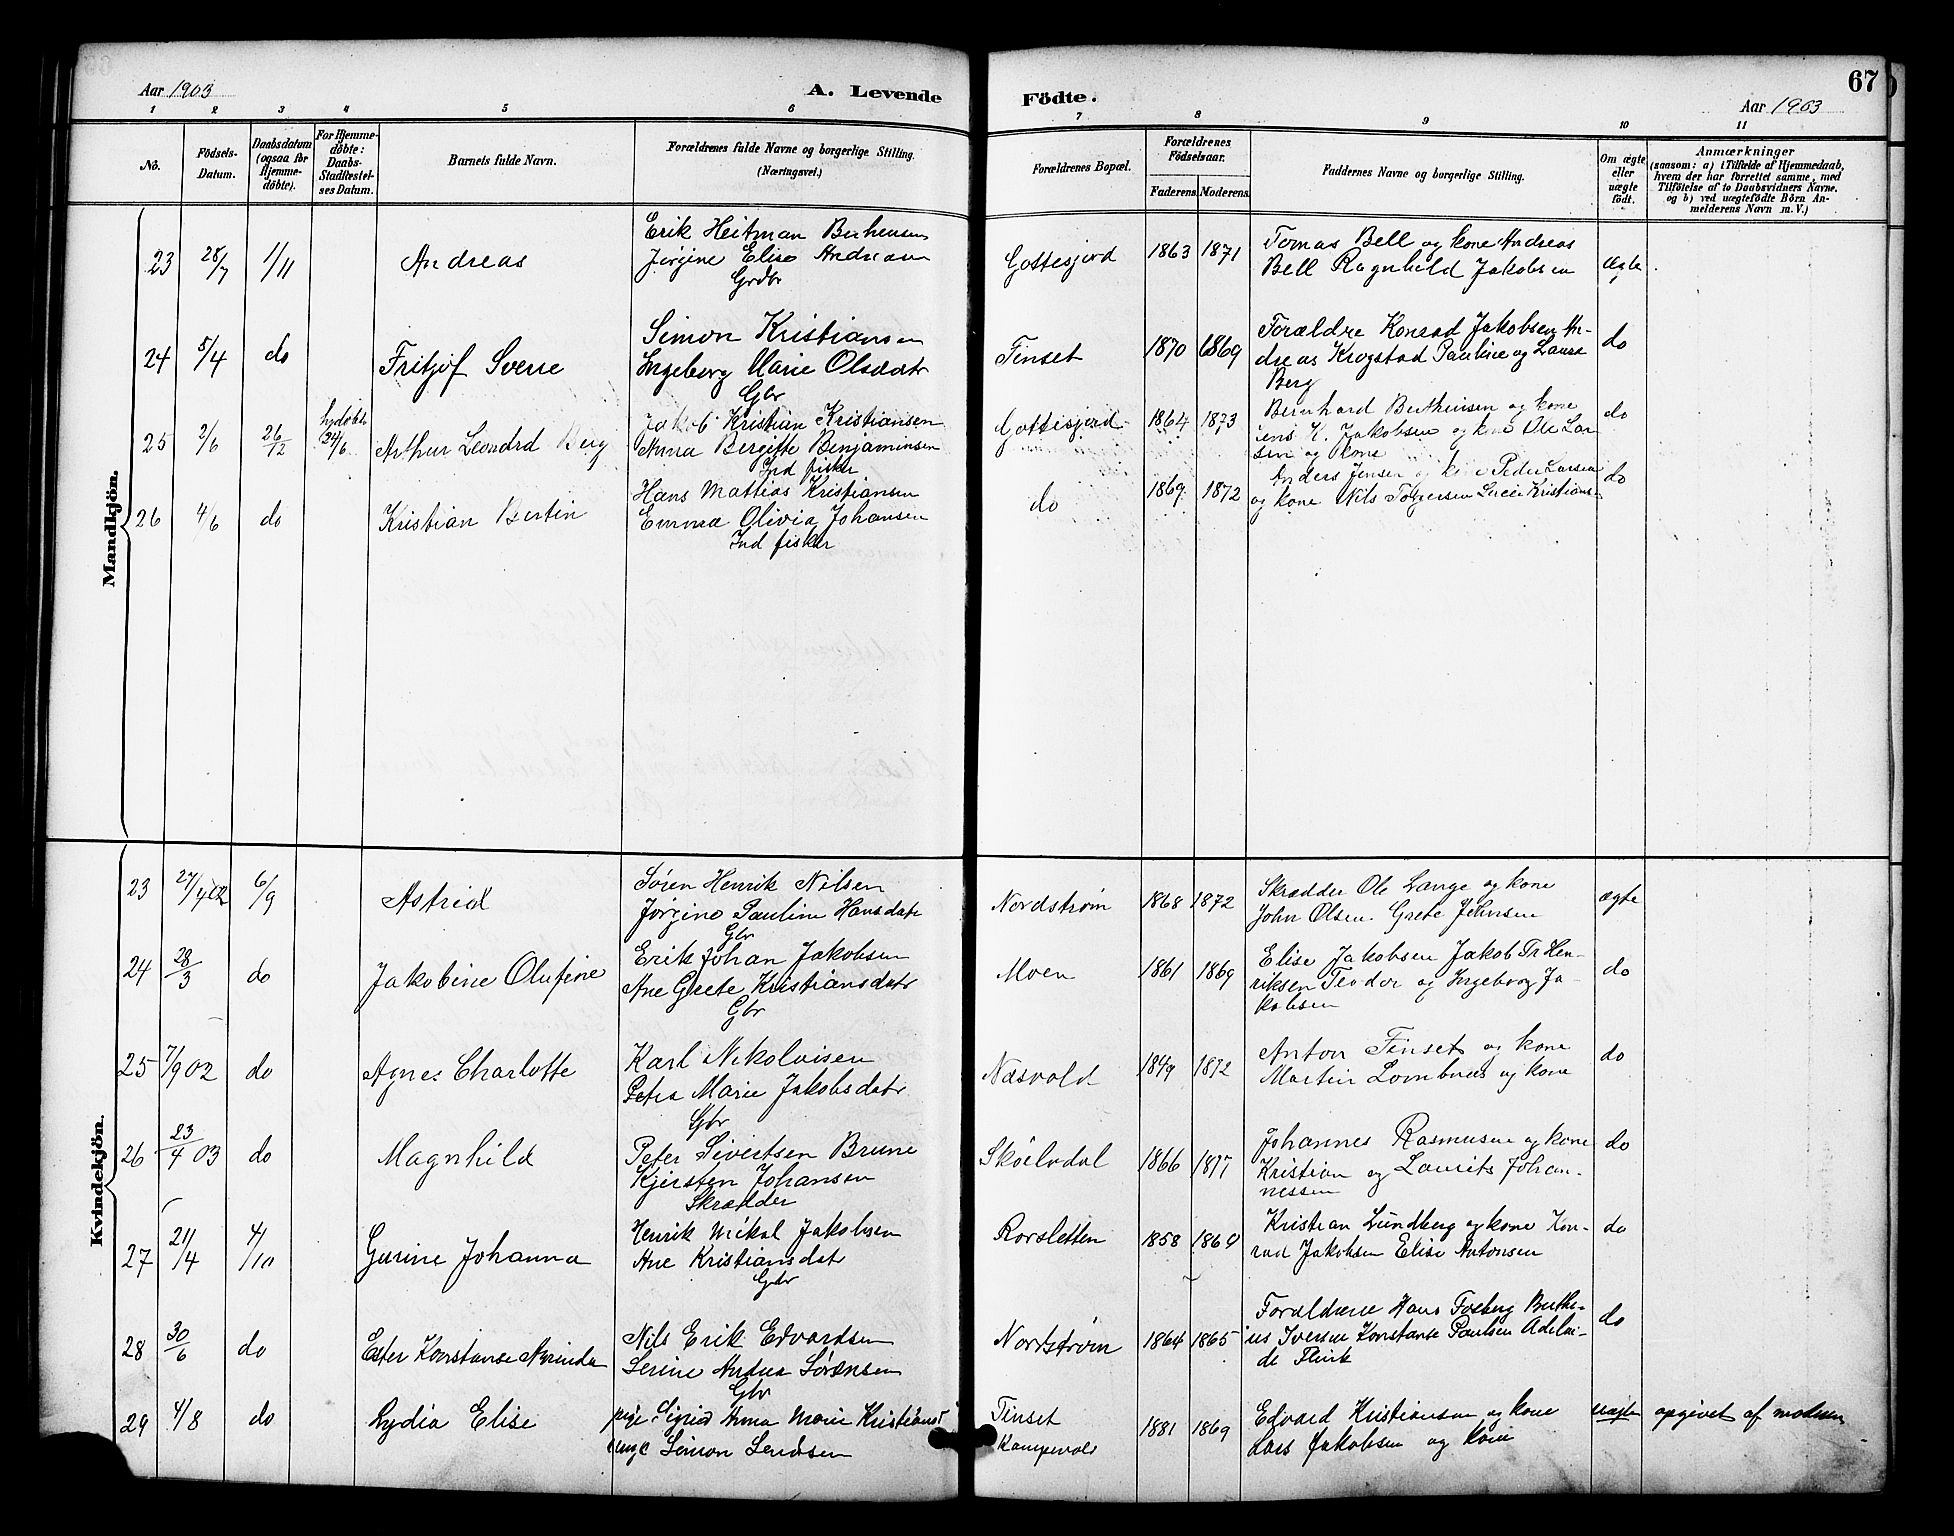 Aar 1903
A. Levende
Födte.
67
Aar 1903
1 2 3 4 5 6 7 8 9 10 11
No.
Födsels-
Datum.
Daabsdatum
(ogsaa for
Hjemme-
döbte).
For Hjemme-
döbte:
Daabs-
Stadfæstel-
ses Datum.
Barnets fulde Navn.
Forældrenes fulde Navne og borgerlige Stilling.
(Næringsvei.)
Forældrenes Bopæl.
Forældrenes
Födselsaar.
Faderens. Moderens.
Faddernes Navne og borgerlige Stilling.
Om ægte
eller
uægte
födt.
Anmærkninger
(saasom: a) i Tilfælde af Hjemmedaab,
hvem der har forrettet samme, med
Tilföielse af to Daabsvidners Navne.
og b) ved uægtefödte Börn An-
melderens Navn m. V.)
Mandkjön.
23 28/7 1/11 Andreas
Erik Heitman Berhensen
Jørgine Elise Andreasen
Grdbr
Gottesjord 1863 1871
Tomas Bell og kone Andreas
Bell Ragnhild Jakobsen
ægte
24 5/4 do Fritjof Sverre
Simon Kristiansen
Ingeborg Marie Olsdatr
Gbr
Finset 1870 1869
Forældre Konrad Jakobsen An-
dreas Krogstad Pauline og Laura
Berg
do
25 2/6 26/12 hjdøbt 24/6 Arthur Leonard Berg
Jakob Kristian Kristiansen
Anna Bergitte Benjaminsen
Ind fisker
Gottesjord 1864 1873
Bernhard Berthensen og kone
Jens K. Jakobsen og kone Ole Lar
sen og kone
do
26 4/6 do Kristian Bertin
Hans Mattias Kristiansen
Emma Olivia Johansen
Ind fisker
do 1869 1872
Anders Jensen og kone Peder Larsen
og kone Nils Torgersen Kristians-
do
Kvindekjön.
23 27/4 02 6/9 Astrid
Søren Henrik Nilsen
Jørgine Pauline Hansdatr
Gbr
Nordstrøm 1868 1872
Skrædder Ole Lange og kone
John Olsen. Grete Johnsen
ægte
24 28/3 do Jakobine Olufine
Erik Johan Jakobsen
Ane Grete Kristiansdatr
Gbr
Moen 1861 1869
Elise Jakobsen Jakob Tr Hen-
riksen Teodor og Ingeborg Ja-
kobsen
do
25 7/9 02 do Agnes Charlotte
Karl Nikolaisen
Petra Marie Jakobsdatr
Gbr
Næsvold 1849 1872
Anton Finset og kone
Martin Lombnæs og kone
do
26 23/4 03 do Magnhild
Peter Sivertsen Brune
Kjersten Johansen
Skrædder
Skøelvdal 1866 1877
Johannes Rasmusen og kone
Kristian og Laurits Johan-
nessen
do
27 21/4 4/10 Gurine Johanna
Henrik Mikal Jakobsen
Ane Kristiansdatr
Gbr
Rorsletten 1858 1864
Kristian Lundberg og kone Kon-
rad Jakobsen Elise Antonsen
do
28 30/6 do Ester Konstanse Nyrinda
Nils Erik Edvardsen
Serine Andrea Sørensen
Gbr
Nordstrøm 1864 1865
Forældrene Hans Foeberg Berthe-
us Iversen Konstanse Paulsen Adelai-
de Flink
do
29 4/8 do Lydia Elise
pige Sigrid Anna Marie Kristians
unge Simon Sendsen
Finset
Kampevoll
1881 1869
Edvard Kristiansen og kone
Lars Jakobsen og kone
uægte
opgivet af moderen